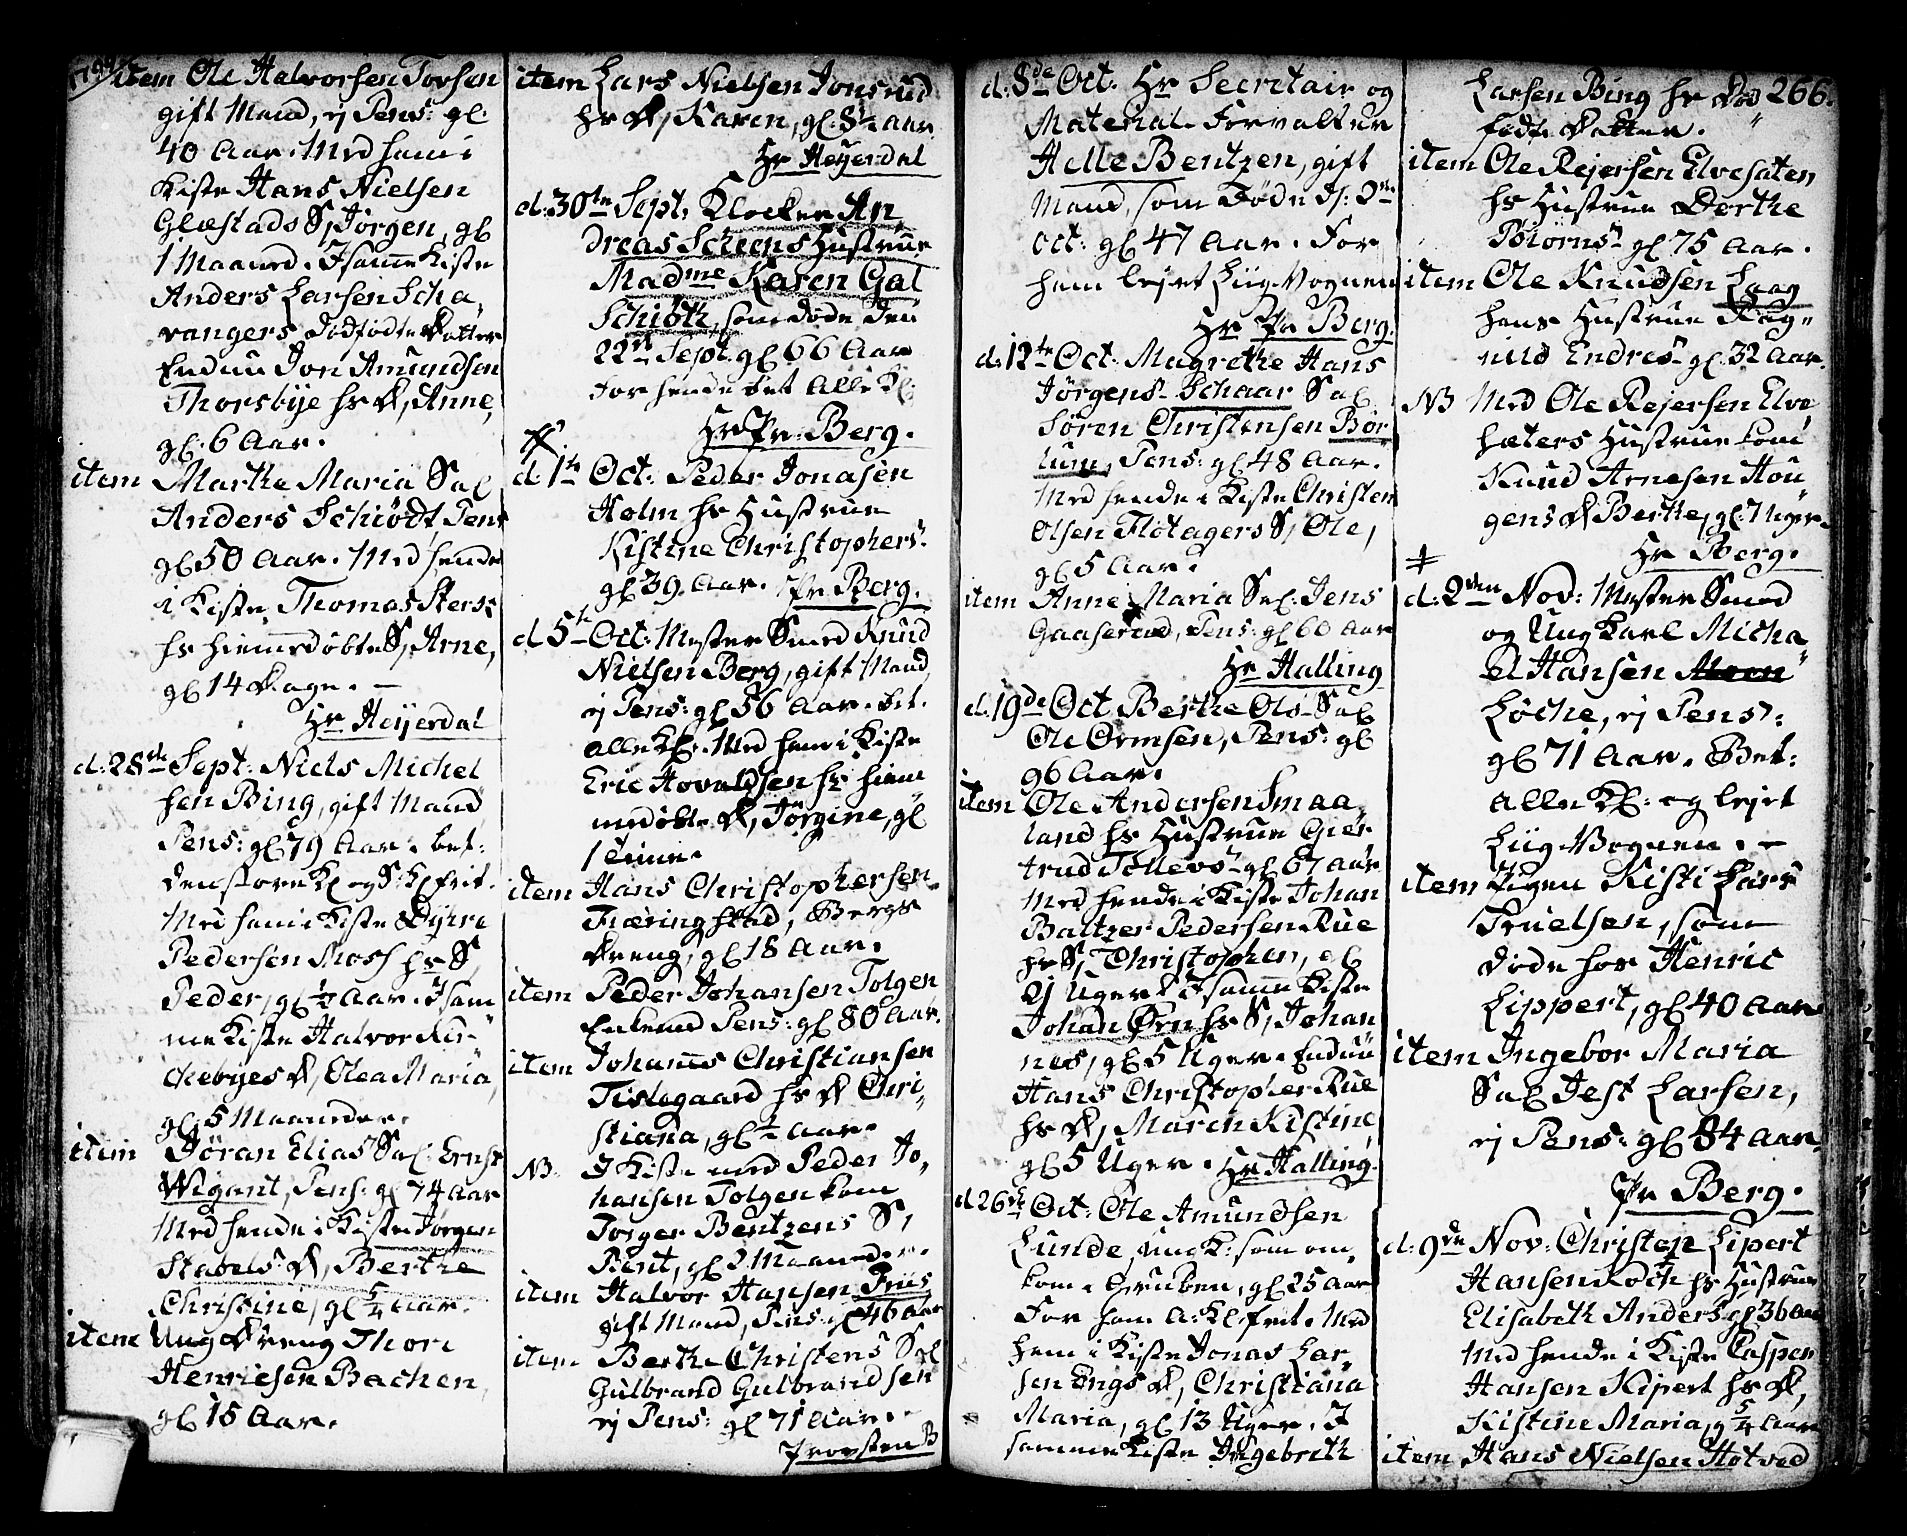 1799.
item Ole Halvorsen Torsen
gift Mand, ej Pens: gl.
40 Aar. Med ham i
Kiste Hans Nielsen
Glæstads S, Jørgen, gl
1 Maaned. I samme Kiste
Anders Larsen Scha,
vangers dødfødte Datter
Endnu Jon Amundsen
Thorsbye hs D, Anne,
gl. 6 Aar.
item Marthe Maria Sal
Anders Schiødt, Pens
gl 50 Aar. Med hende
i Kiste Thomas Sters:
hs hiemedøbte S, Arne,
gl 14 Dage. —
Hr Heyerdal
d. 28de Sept: Niels Michel
sen Bing, gift Mand
Pens: gl 79 Aar. bet:
den store Kl. og S: Kl frit.
Med ham i Kiste
Pedersen Moss hs S,
Peder, gl ½ Aar. I sam
me Kiste Halvor Kir-
chebyes D, Olea Maria,
gl 5 Maaneder.
item Jøran Elias Sal: Ernst
Wigant, Pens: gl 74 Aar
Med hende i Kiste Jørgen
Stabels D, Berthe
Christine, gl 5/4 Aar.
item Ung Dreng Thore
Henricsen Bachen,
gl 15 Aar.
item Lars Nielsen Jonsrud
hs D, Karen, gl: 8½ Aar
Hr Heyerdal
d: 30te Sept, Klocker An
dreas Scheens Hustrue
Madme Karen Gal
Schiøth, som døde den
22de Sept. gl 66 Aar
For hende bet Alle Kl:
Hr Pr: Berg.
d. 1te Oct: Peder Jonasen
Holm hs Hustrue
Kistine Christophers:
gl 39. Aar. Pr Berg.
d. 5te Oct: Mester Smed Knud
Nielsen Berg, gift Mand,
ej Pens: gl 56 Aar. bet.
alle Kl. Med ham i Kiste
Eric Hovaldsen hs hiem
medøbte D, Jørgine, gl
1 Time.
item Hans Christophersen
Fiæringstad, Bergs
Dreng, gl 18 Aar.
item Peder Johansen Tolgen
Enkemd Pens: gl 80 Aar.
item Johannes Christiansen
Tislegaard hs D Chri,
stiana, gl ½ Aar.
NB. I Kiste med Peder Jo,
hansen Tolgen kom
Torger Bentzens S,
Bent, gl 3 Maaneder.
item Halvor Hansen Friis
gift Mand, Pens: gl 46 Aar
item Berthe Christens Sal
Gulbrand Gulbrandsen
ej Pens: gl 71 Aar.
Provsten B
d: 8de Oct. Hr Secretair og
Material-Forvalter
Helle Bentzen, gift
Mand, som døde d: 2den
Oct: gl 47 Aar. For
ham lejet Liig-Vognen
Hr Pr Berg.
d. 12te Oct: Magrethe Hans
Jørgens- Schaar Sal
Søren Christensen Bør
lum, Pens: gl 48 Aar.
Med hende i Kiste Christen
Olsen Flotagers S, Ole,
gl 5 Aar.
item Anne Maria Sal: Jens
Gaaserud, Pens: gl 60 Aar
Hr Halling
d. 19de Oct Berthe Ols- Sal
Ole Ormsen, Pens: gl
96 Aar.
item Ole Andersen Smaa,
land hs Hustrue Giør
trud Tollevs- gl 67 Aar
Med hende i Kiste Johan
Baltzer Pedersen Rue
hs S, Christopher, gl
Uger I samme Kiste
Johan Ørn hs S, Johan
nes, gl 5 Uger. Endnu
Hans Christopher Rue
hs D, Maren Kistine
gl 5 Uger. Hr Halling.
d. 26de Oct: Ole Amundsen
Lunde, Ung K: som om,
kom i Gruben, gl 25 Aar
For ham A: Kl frit. Med
ham i Kiste Jonas Lar
sen Engs D, Christiana
Maria, gl 13 Uger. I
samme Kiste Ingebreth
266.
Larsen Bing hs Død
fødte Datter.
item Ole Rejersen Elvesæter
hs Hustrue Dorthe
Biørns- gl 75 Aar.
item Ole Knudsen Laag
hans Hustrue Rag-
nild Endres- gl. 32 Aar.
NB Med Ole Rejersen Elve
sæters Hustrue kom
Knud Arnesen Hou
gens D Berthe, gl. 7 Uger.
Hr Berg.
d. 2den Nov: Mester Smed
og Ung Karl Micha
el Hansen Moen
Løche, ej Pens:
gl 71 Aar. Bet:
alle Kl: og lejet
Liig-Vognen. -
item Pigen Kisti Lars
Truelsen, som
døde hos Henric
Lippert, gl 40 Aar
item Ingebor Maria
Sal Jest Larsen,
ej Pens: gl 84 Aar.
Pr Berg.
d: 9de Nov: Christen Lipert
Hansen Koch hs Hustrue
Elisabeth Anders gl 36 Aar
Med hende i Kiste Casper
Hansen Kipert hs D,
Kistine Maria, gl 5/4 Aar
item Hans Nielsen Hotved